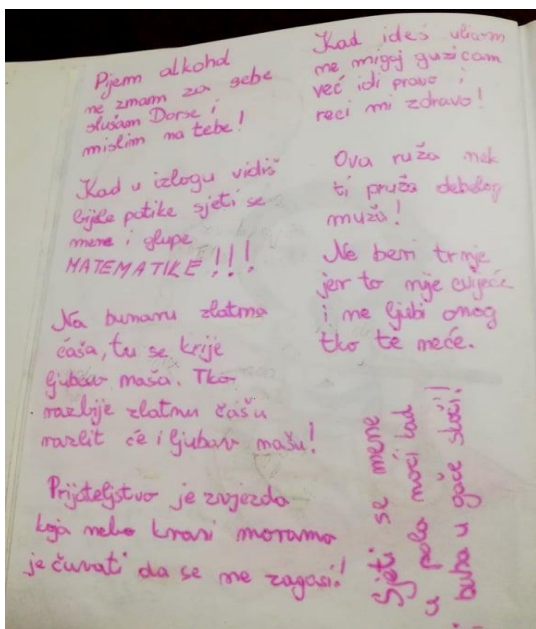 Pijem alkohol
ne znam za sebe
slušam Dorse i
mislim na tebe!
Kad u izlogu vidiš
bijele patike sjeti se
mene i glupe
MATEMATIKE!!!
Na bunaru zlatna
čaša, tu se krije
ljubav naša. Tko
razbije zlatnu čašu
razlit će i ljubav našu!
Prijateljstvo je zvjezda
koja nebo krasi moramo
je čuvati da se ne zagasi!
Kad ideš ulicom
ne migaj guzicom
već idi pravo i
reci mi zdravo!
Ova ruža nek
ti pruža debelog
muža!
Ne beri trnje
jer to nije cvijeće
i ne ljubi onog
tko te neće.
Sjeti se mene
u pola noći kad
i buba u gaće skoči!